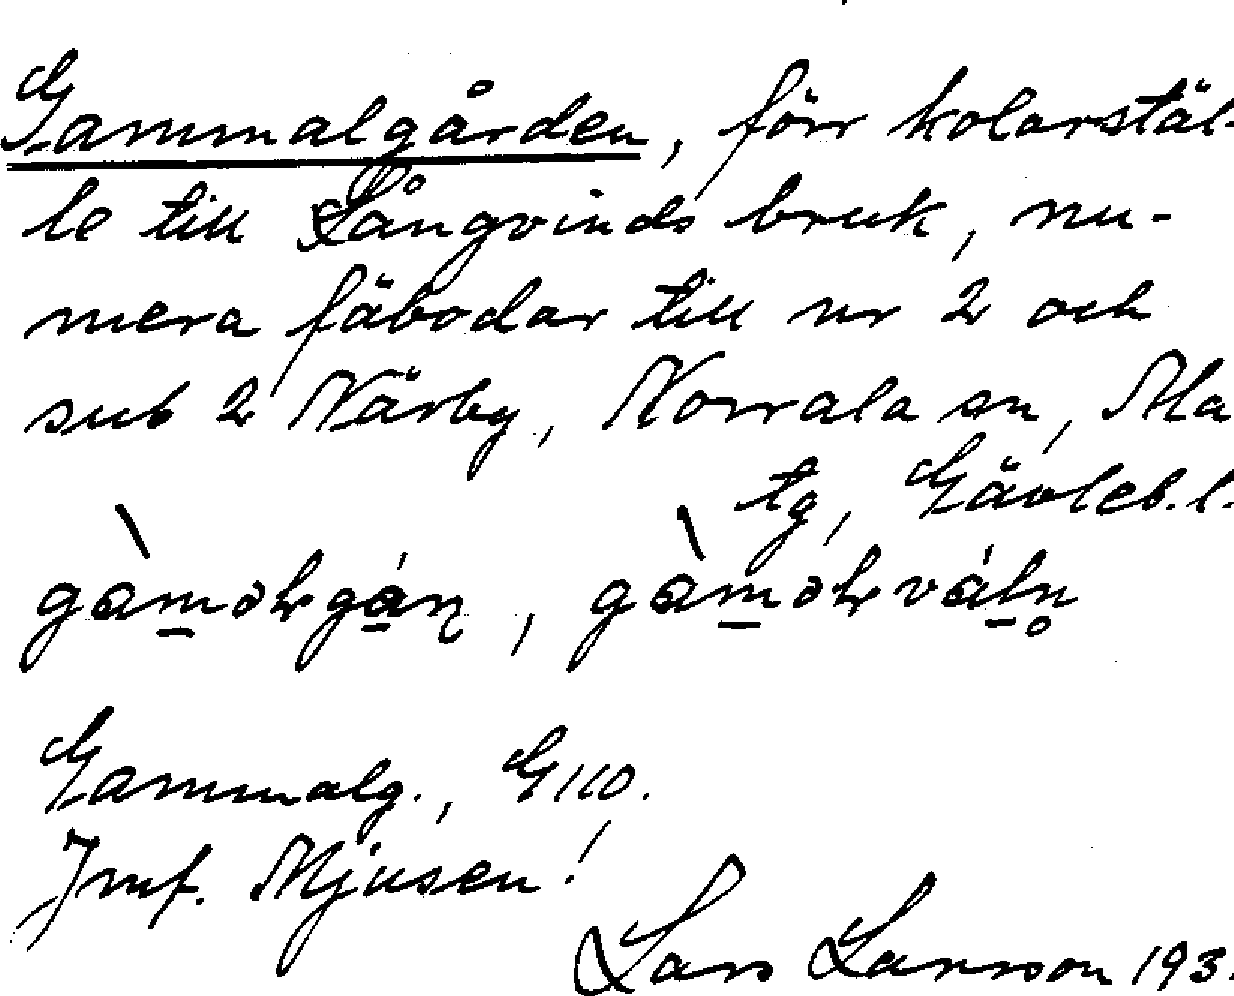 Gammalgården, förr kolarstäl-
le till Långvinds bruk, nu-
mera fäbodar till nr 2 och
sub 2 Närby, Norrala sn, Ala
tg, Gävleb. l.
Gammalg., GKO.
Jmf. Mjusen!
Lars Larsson 193